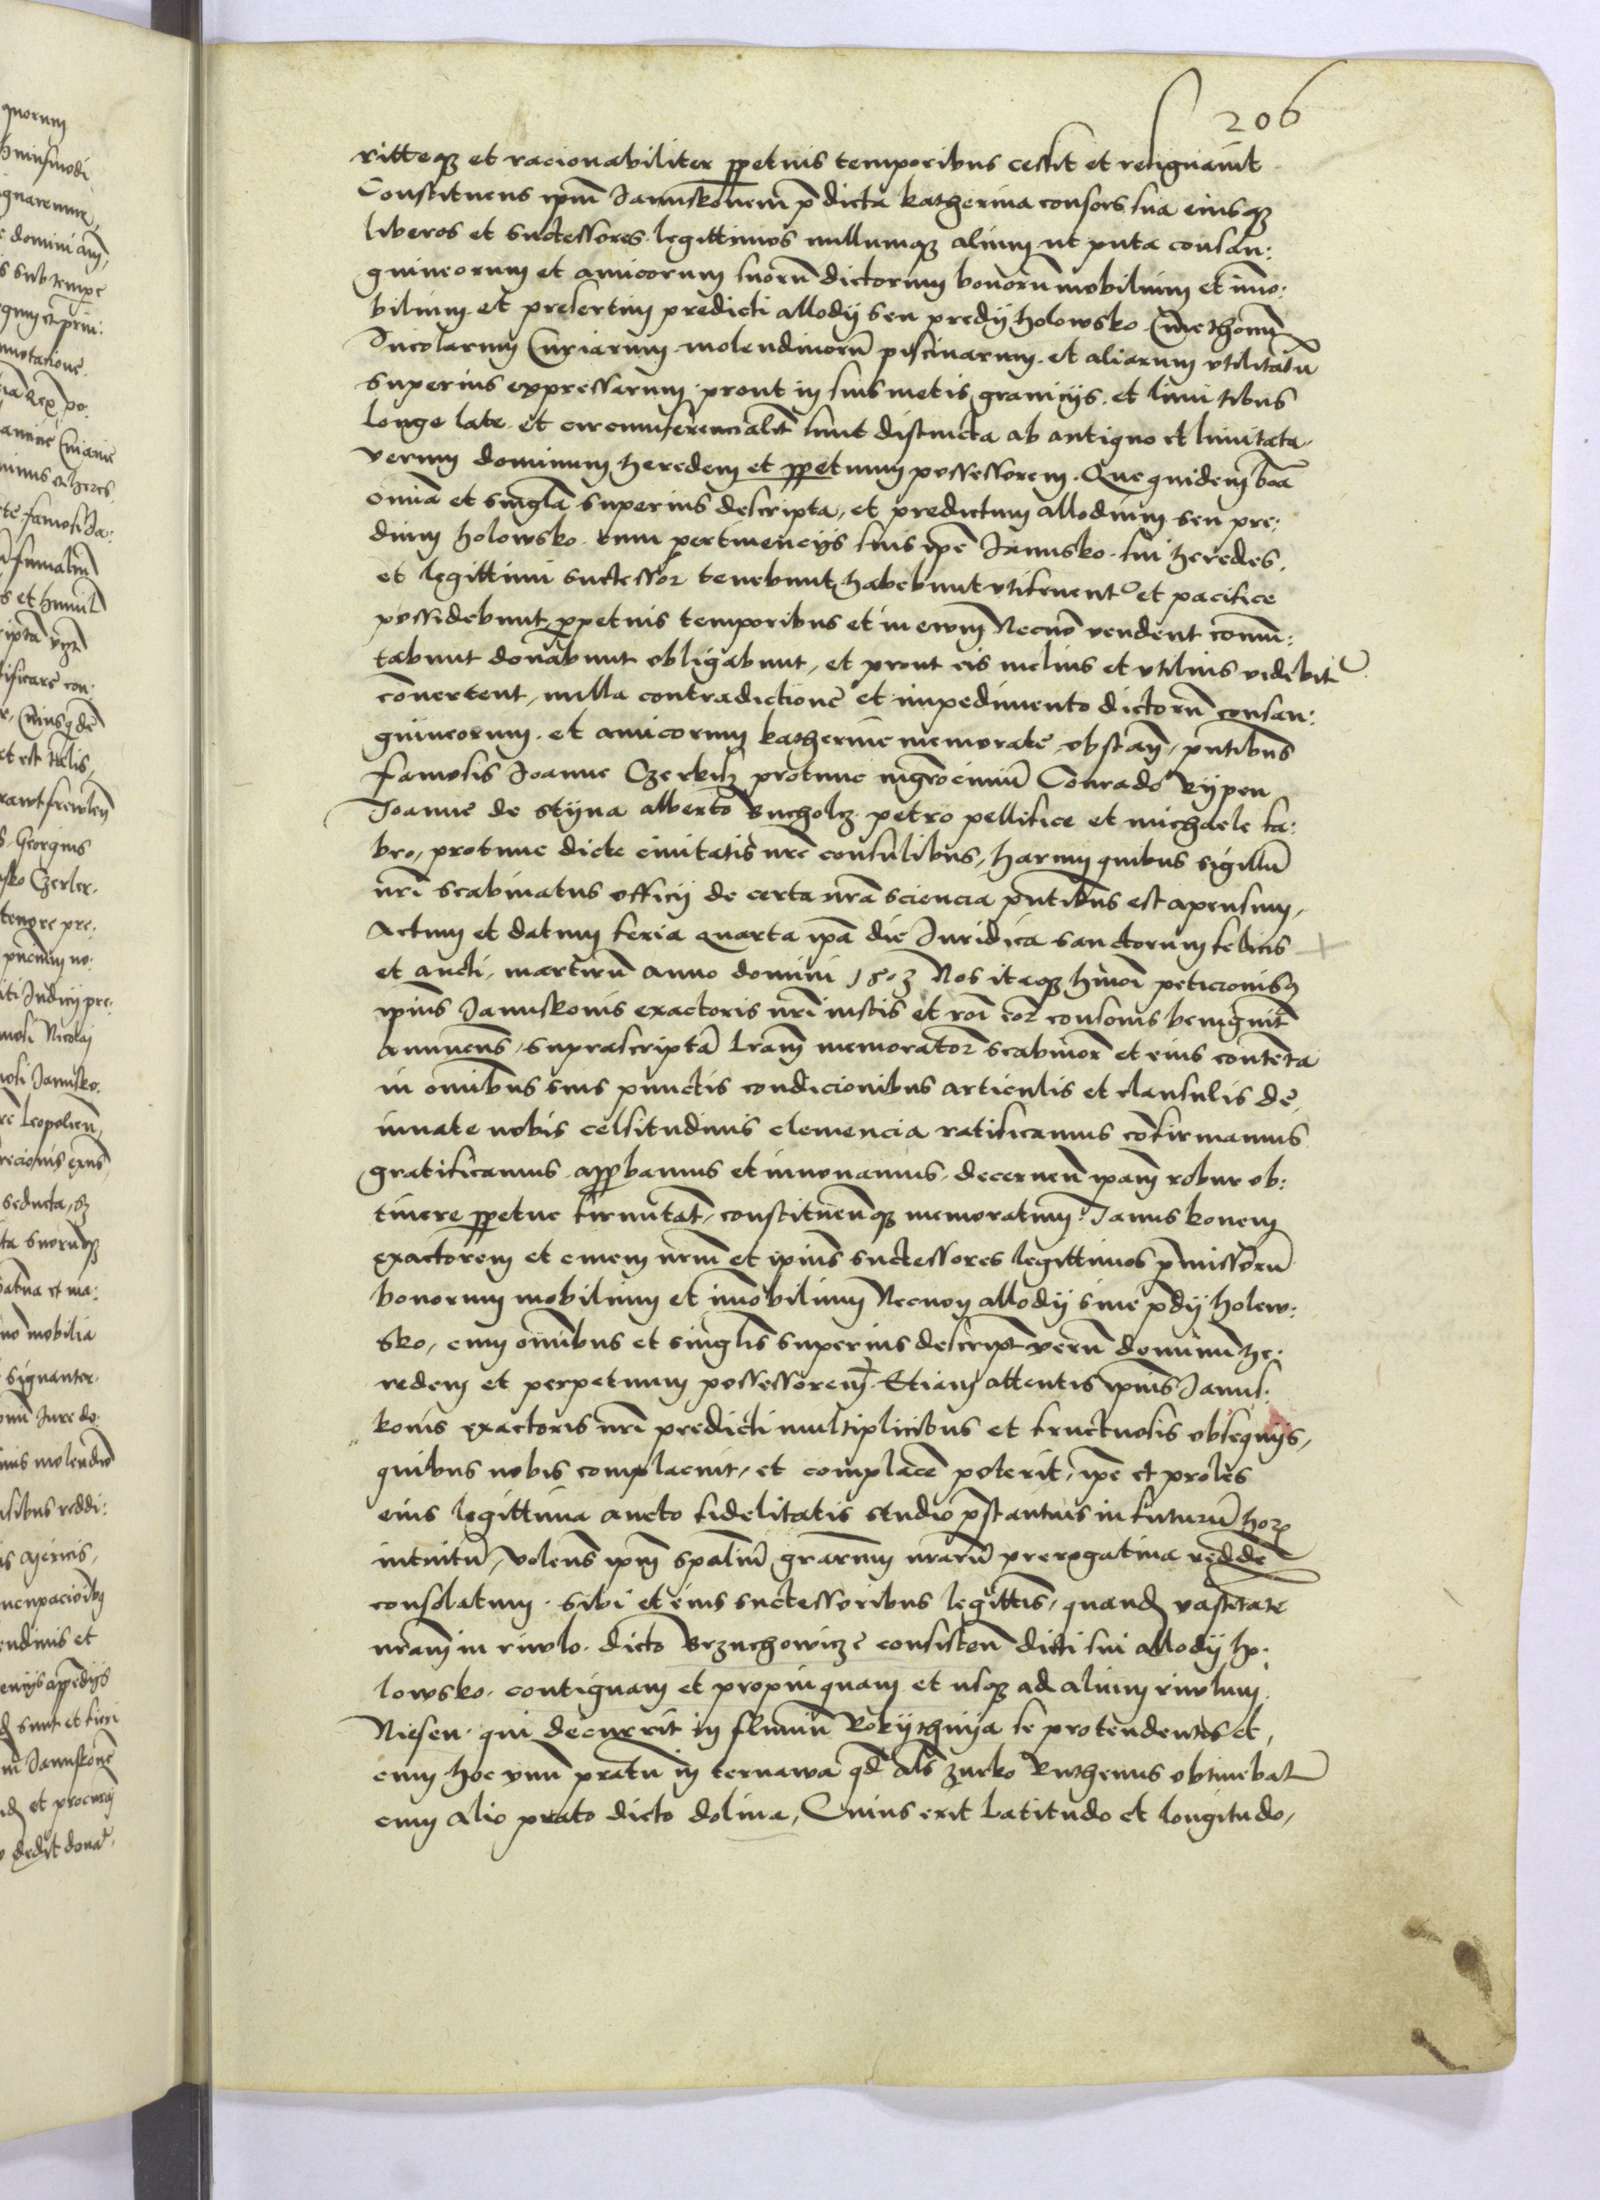 206
ritteqȝ et racionabiliter ꝑpetuis temporibus cessit et resignauit
Constituens ipm̄ Januskonem p̄dicta katherina consors sua eiusqȝ
liberos et successores legittimos nullumqȝ alium ut puta consan:
guineorum et amicorum suorū dictorum bonorū mobilium et im̄o:
bilium et presertim predicti allodij seu predij holowsko Cmethonum
Incolarum Curiarum molendinorū piscinarum et aliarum vtilitatū
superius expressarum prout in suis metis granicijs et limitibus
longe late et circumferencialit̄ sunt distincta ab antiquo et limitata
verum dominum heredem et ꝑpetuum possessorem. Que quidem bōa
om̄ia et singl̄a superius descripta, et predictum allodium seu pre:
dium holowsko cum pertinencijs suis ip̄e Janusko sui heredes
et legittimi successor tenebunt habebunt vtifruent᷑ et pacifice
possidebunt ꝑpetuis temporibus et in ewm Necnō vendent com̄u:
tabunt donabunt obligabunt, et prout eis melius et vtilius videbit᷑
cōuertent, nulla contradictione et impedimento dictorū consan:
guineorum et amicorum katherine memorate obstan̄, pn̄tibus
famosis Joanne Czerkisz protunc mgr̄ociuiū Conrado Rypen
Joanne de Styna alberto Bucholcz petro pellifice et michaele fa:
bro, protunc dicte ciuitatis nr̄e consulibus, harum quibus sigillū
nr̄i scabinatus officij de certa nr̄a sciencia pn̄tibus est apensum,
Actum et datum feria quarta ipā die Juridica sanctorum felicis
et aucti, martirū anno domini 1503 Nos itaqȝ hm̄oi peticionibȝ
ipius Januskonis exactoris nr̄i iustis et roi consonis benignit̄
annuens, suprascriptā lrām memorator scabinor et eius contenta
in om̄ibus suis punctis condicionibus articulis et clausulis de
innate nobis celsitudinis clemencia ratificamus cōfirmamus
gratificamus apꝓbamus et innouamus, decernen̄ ipām robur ob:
tinere ꝑpetue firmitat̄, constituen̄qȝ memoratum Januskonem
exactorem et ciuem nr̄m et ipius successores legittimos p̄missorū
bonorum mobilium et im̄obilium Necnon allodij siue p̄dij holow:
sko, cum om̄ibus et singl̄is superius descript̄ verū dominū he:
redem et perpetuum possessorem Etiam attentis ipius Janus:
konis exactoris nr̄i predicti multiplicibus et fructuosis obsequijs,
quibus nobis complacuit, et complacē poterit, ip̄e et proles
eius legittima aucto fidelitatis studio p̄stantius in futurū hoꝝ
intuitu, volens ipm̄ sp̄aliū gr̄arum nr̄arū prerogatiua reddē
consolatum sibi et eius successoribus legittis, quand vastitatē
nr̄am in riuulo dicto Brzuchowicze consisten̄ dicti sui allodij ho:
lowsko, contiguam et propinquam et usqȝ ad alium riuulum
Niesen qui decurrit in flumen Rokythnija se protendentes et,
cum hoc vnū pratū in ternawa qd̄ als zurko Ruthenus obtinebat᷑
cum alio prato dicto dolina, Cuius erit Latitudo et longitudo,